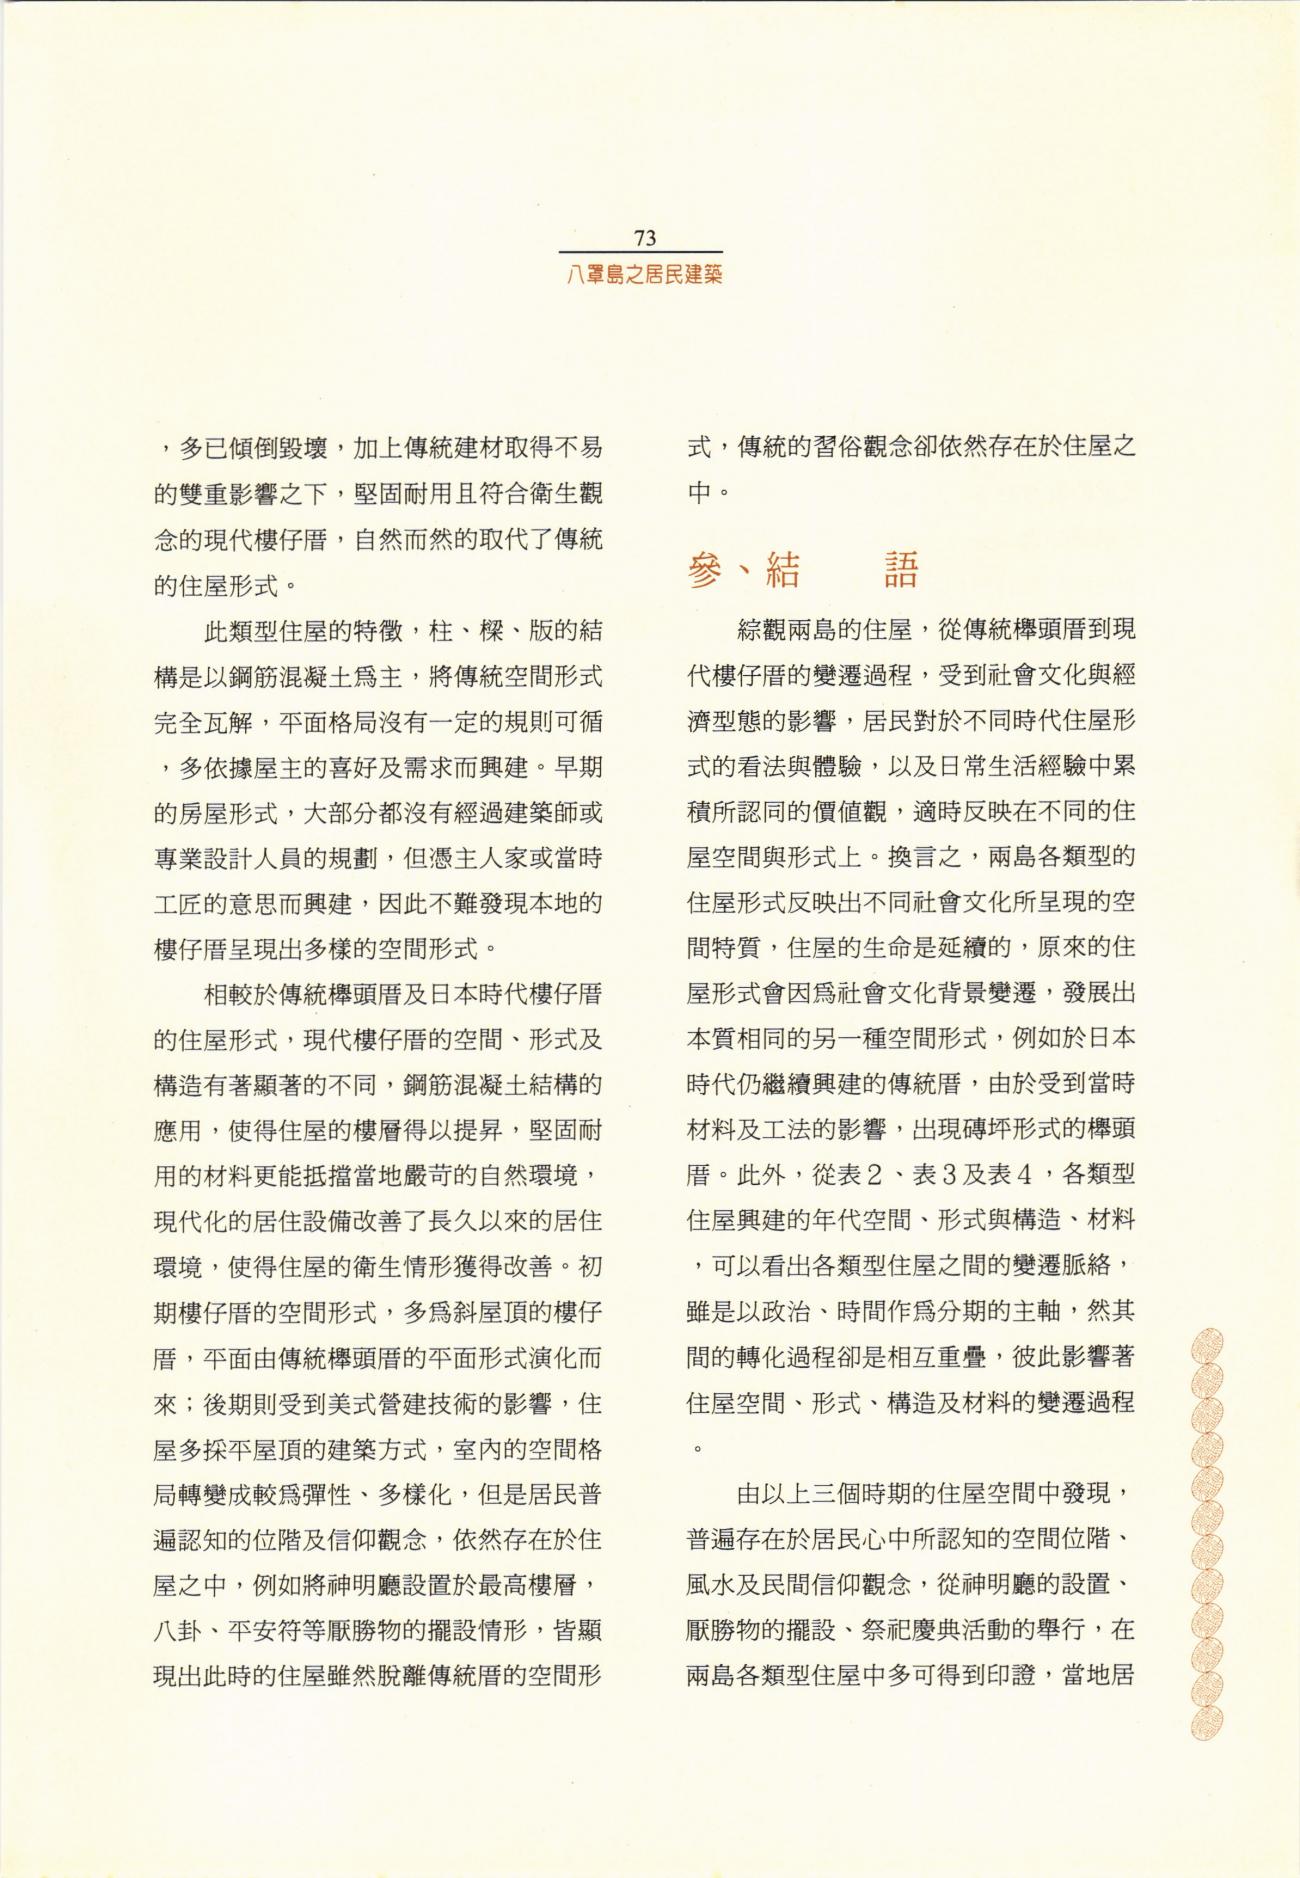 73
八罩島之居民建築
，多已傾倒毀壞，加上傳統建材取得不易
的雙重影響之下，堅固耐用且符合衛生觀
念的現代樓仔厝，自然而然的取代了傳統
的住屋形式。
此類型住屋的特徵，柱、樑、版的結
構是以鋼筋混凝土爲主，將傳統空間形式
完全瓦解，平面格局沒有一定的規則可循
，多依據屋主的喜好及需求而興建。早期
的房屋形式，大部分都沒有經過建築師或
專業設計人員的規劃，但憑主人家或當時
工匠的意思而興建，因此不難發現本地的
樓仔厝呈現出多樣的空間形式。
相較於傳統櫸頭厝及日本時代樓仔厝
的住屋形式，現代樓仔厝的空間、形式及
構造有著顯著的不同，鋼筋混凝土結構的
應用，使得住屋的樓層得以提昇，堅固耐
用的材料更能抵擋當地嚴苛的自然環境，
現代化的居住設備改善了長久以來的居住
環境，使得住屋的衛生情形獲得改善。初
期樓仔厝的空間形式，多爲斜屋頂的樓仔
厝，平面由傳統櫸頭厝的平面形式演化而
來；後期則受到美式營建技術的影響，住
屋多採平屋頂的建築方式，室內的空間格
局轉變成較爲彈性、多樣化，但是居民普
遍認知的位階及信仰觀念，依然存在於住
屋之中，例如將神明廳設置於最高樓層，
八卦、平安符等厭勝物的擺設情形，皆顯
現出此時的住屋雖然脫離傳統厝的空間形
式，傳統的習俗觀念卻依然存在於住屋之
中。
參、結　　語
綜觀兩島的住屋，從傳統櫸頭厝到現
代樓仔厝的變遷過程，受到社會文化與經
濟型態的影響，居民對於不同時代住屋形
式的看法與體驗，以及日常生活經驗中累
積所認同的價值觀，適時反映在不同的住
屋空間與形式上。換言之，兩島各類型的
住屋形式反映出不同社會文化所呈現的空
間特質，住屋的生命是延續的，原來的住
屋形式會因爲社會文化背景變遷，發展出
本質相同的另一種空間形式，例如於日本
時代仍繼續興建的傳統厝，由於受到當時
材料及工法的影響，出現磚坪形式的櫸頭
厝。此外，從表２、表３及表４，各類型
住屋興建的年代空間、形式與構造、材料
，可以看出各類型住屋之間的變遷脈絡，
雖是以政治、時間作爲分期的主軸，然其
間的轉化過程卻是相互重疊，彼此影響著
住屋空間、形式、構造及材料的變遷過程
。
由以上三個時期的住屋空間中發現，
普遍存在於居民心中所認知的空間位階、
風水及民間信仰觀念，從神明廳的設置、
厭勝物的擺設、祭祀慶典活動的舉行，在
兩島各類型住屋中多可得到印證，當地居